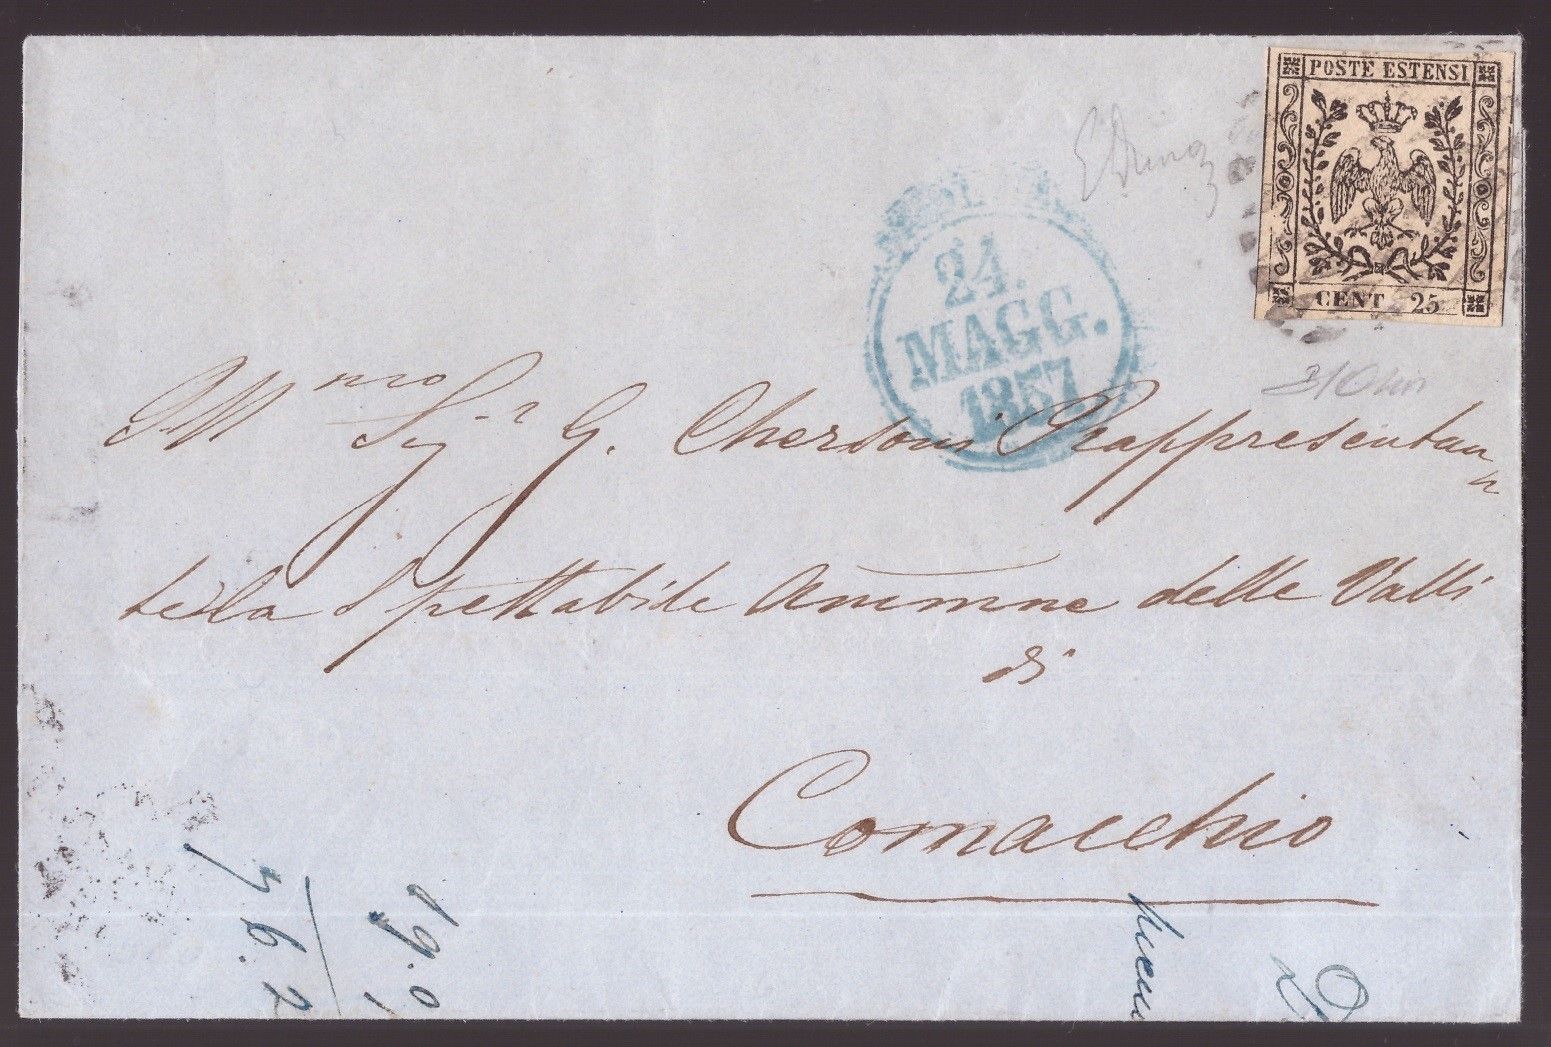 POSTE ESTENSI
CENT 25
24.
MAGG.
1857
Ill.mo Sig.r G. Chersoni Rappresentan
te la Spettabile Ammne delle Valli
di
Comacchio
19.0
/ 36.2